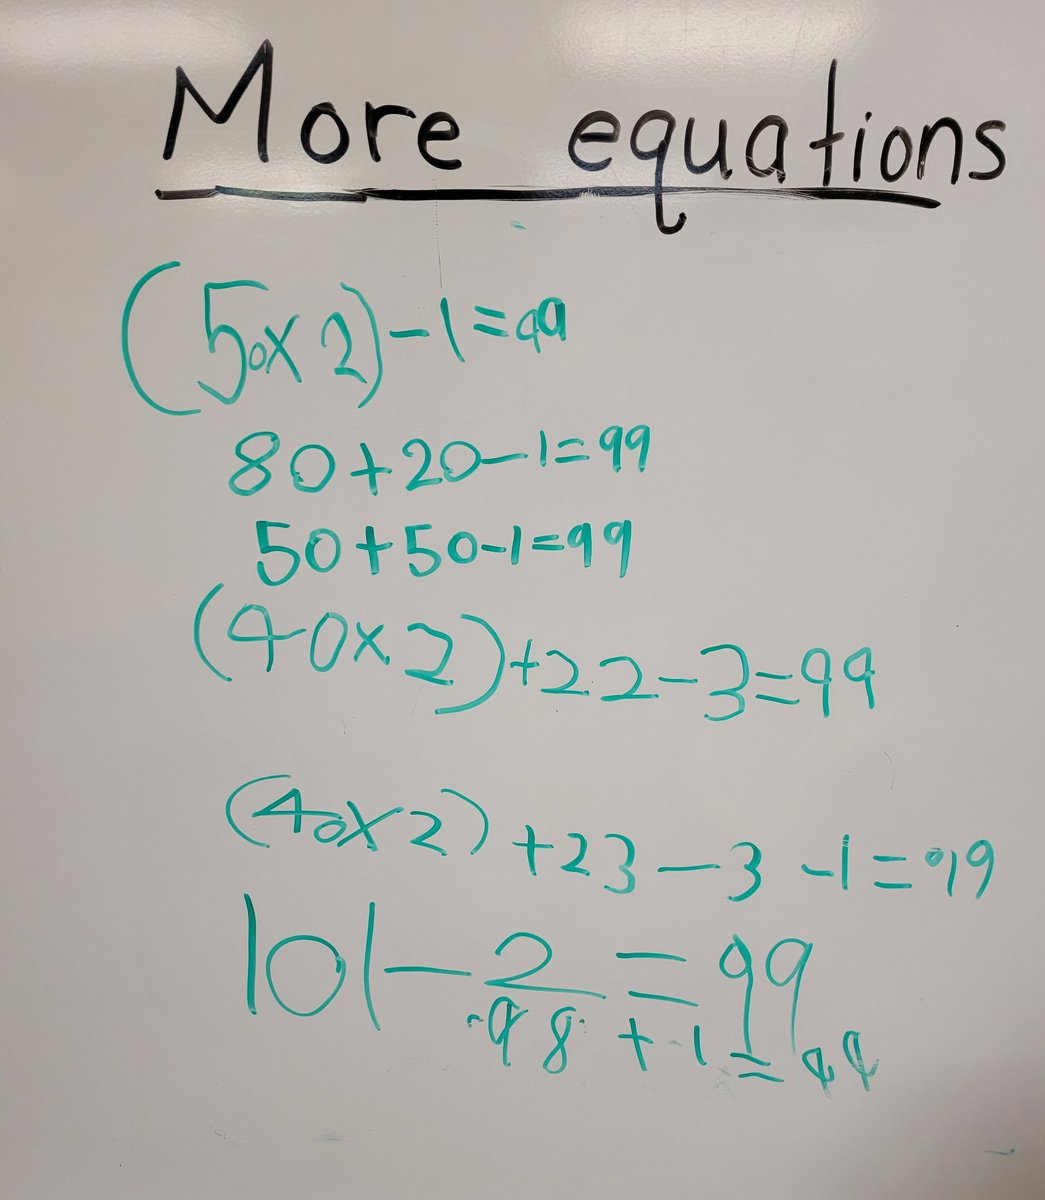 More equations
(50x2)-1=99
80+20-1=99
50+50-1=99
(40x2)+22-3=99
(40x2)+23-3-1=99
101-2=99
98+1=99